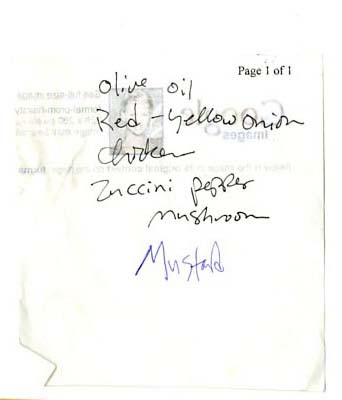 Page 1 of 1
olive oil
Red - yellow onion
chicken
Zuccini pepper
mushroom
Mustard